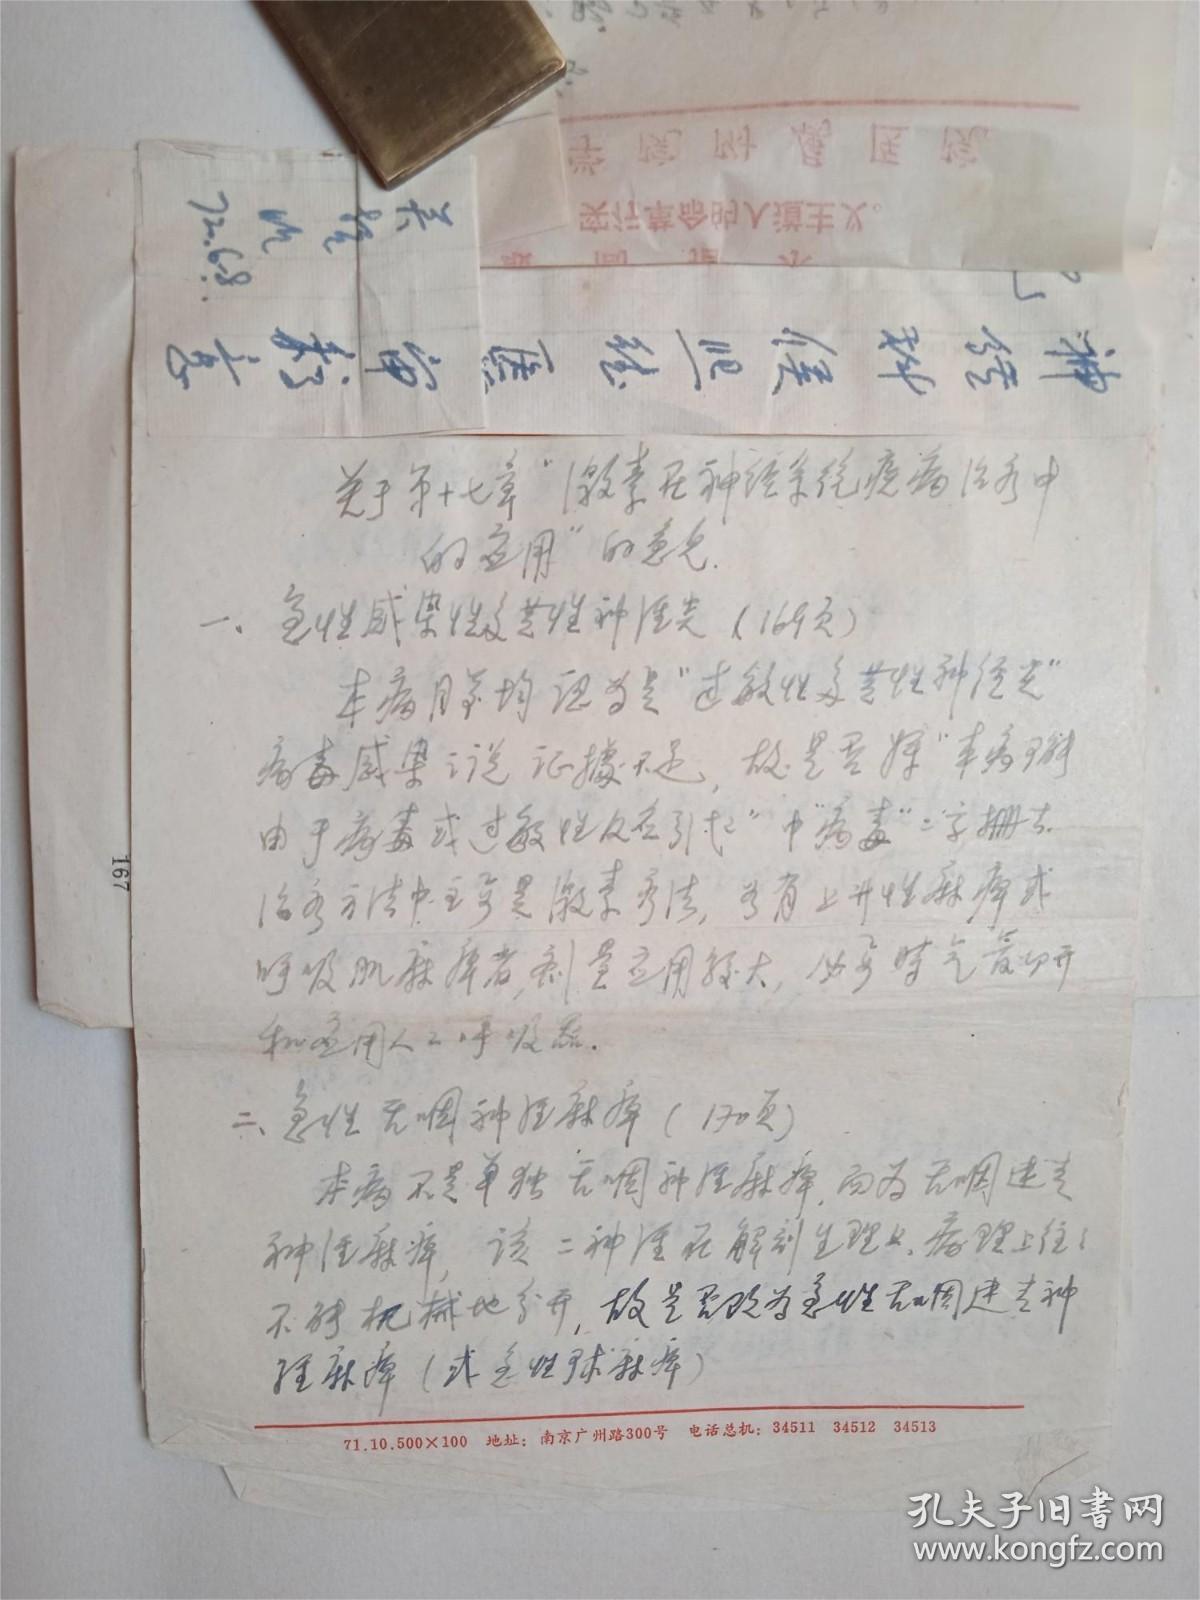 学院附属医院
实行革命的人道主义。
最高指示
72.6.8.
神经科侯熙德医师审意
167
关于第十七章“激素在神经系统疾病治疗中
的应用”的意见.
一、急性感染性多发性神经炎(169页)
本病目前均认为是“过敏性多发性神经炎”
病毒感染之说证据不足,故是否将“本病可能
由于病毒或过敏性反应引起”中“病毒”二字删去.
治疗方法中主要是激素疗法,若有上升性麻痹或
呼吸肌麻痹者,剂量应用较大,必要时气管切开
和应用人工呼吸器.
二、急性舌咽神经麻痹(170页)
本病不是单独舌咽神经麻痹,而为舌咽迷走
神经麻痹,该二神经在解剖生理上、病理上往往
不能机械地分开,故是否改为急性舌咽迷走神
经麻痹(或急性球麻痹)
71.10.500×100 地址:南京广州路300号 电话总机:34511 34512 34513
孔夫子旧书网
www.kongfz.com